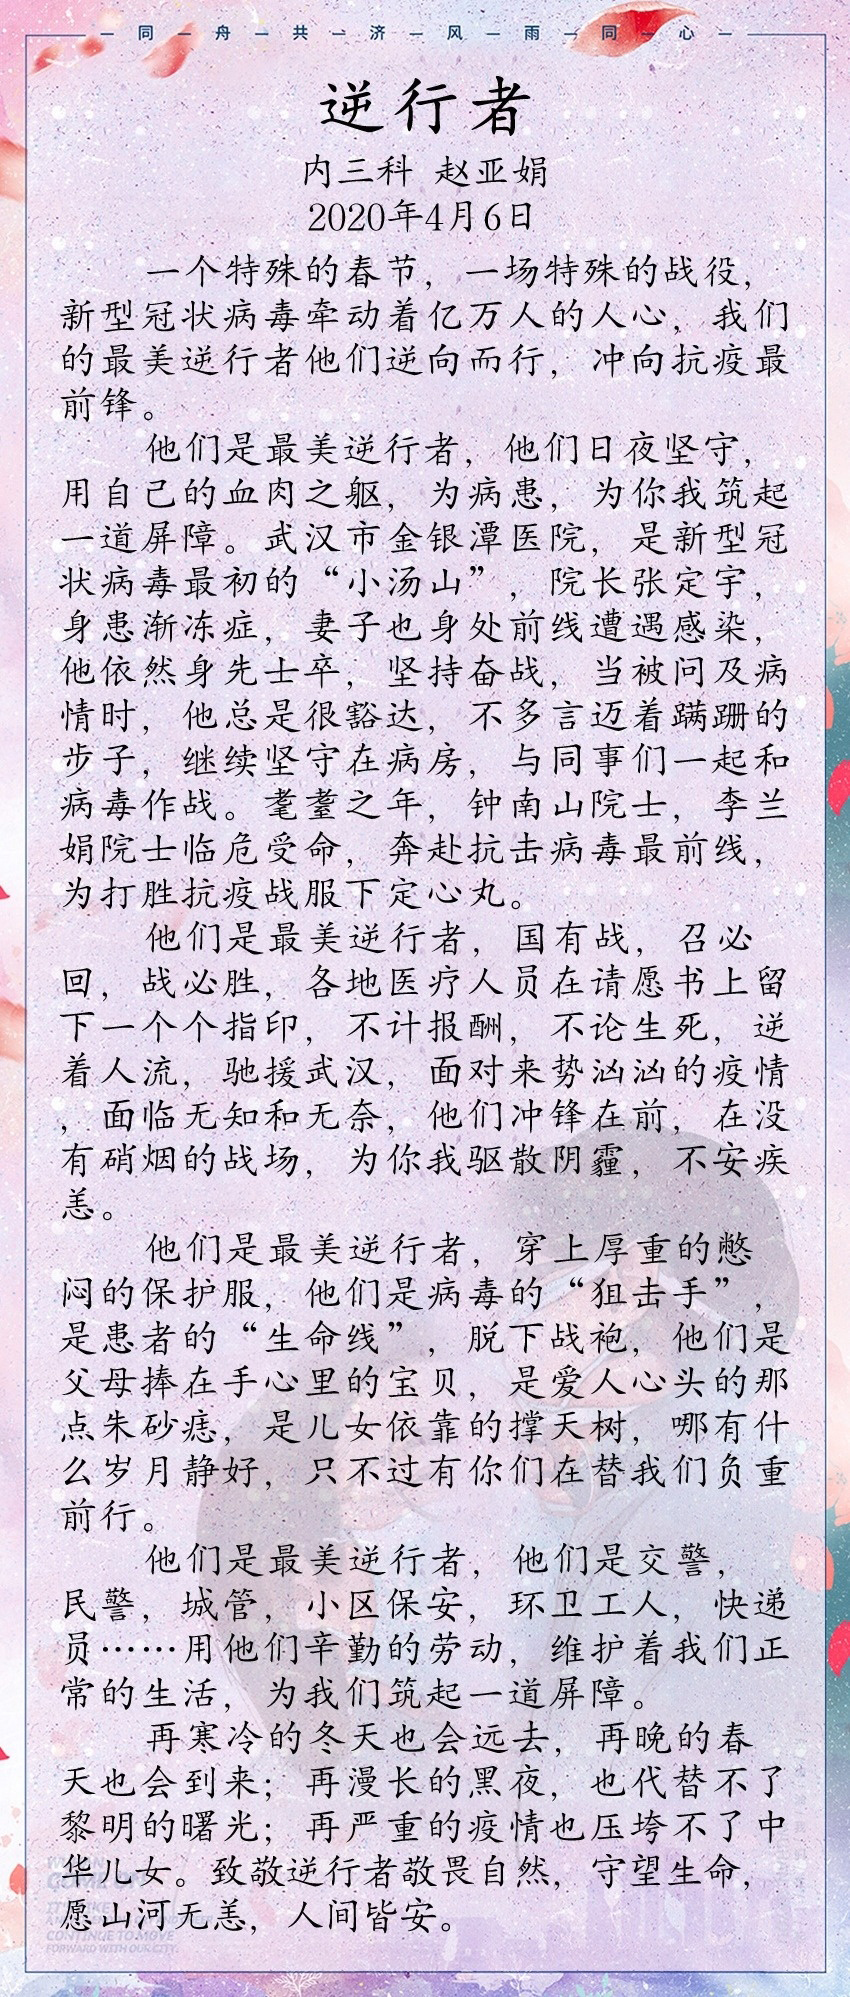 一同一舟一共一济一风一雨一同一心一
逆行者
内三科 赵亚娟
2020年4月6日
一个特殊的春节，一场特殊的战役，
新型冠状病毒牵动着亿万人的人心，我们
的最美逆行者他们逆向而行，冲向抗疫最
前锋。
他们是最美逆行者，他们日夜坚守，
用自己的血肉之躯，为病患，为你我筑起
一道屏障。武汉市金银潭医院，是新型冠
状病毒最初的“小汤山”，院长张定宇，
身患渐冻症，妻子也身处前线遭遇感染，
他依然身先士卒，坚持奋战，当被问及病
情时，他总是很豁达，不多言迈着蹒跚的
步子，继续坚守在病房，与同事们一起和
病毒作战。耄耋之年，钟南山院士，李兰
娟院士临危受命，奔赴抗击病毒最前线，
为打胜抗疫战服下定心丸。
他们是最美逆行者，国有战，召必
回，战必胜，各地医疗人员在请愿书上留
下一个个指印，不计报酬，不论生死，逆
着人流，驰援武汉，面对来势汹汹的疫情
，面临无知和无奈，他们冲锋在前，在没
有硝烟的战场，为你我驱散阴霾，不安疾
恙。
他们是最美逆行者，穿上厚重的憋
闷的保护服，他们是病毒的“狙击手”，
是患者的“生命线”，脱下战袍，他们是
父母捧在手心里的宝贝，是爱人心头的那
点朱砂痣，是儿女依靠的撑天树，哪有什
么岁月静好，只不过有你们在替我们负重
前行。
他们是最美逆行者，他们是交警，
民警，城管，小区保安，环卫工人，快递
员……用他们辛勤的劳动，维护着我们正
常的生活，为我们筑起一道屏障。
再寒冷的冬天也会远去，再晚的春
天也会到来；再漫长的黑夜，也代替不了
黎明的曙光；再严重的疫情也压垮不了中
华儿女。致敬逆行者敬畏自然，守望生命，
愿山河无恙，人间皆安。
CONTINUE TO MOVE
FORWARD WITH OUR CITY.